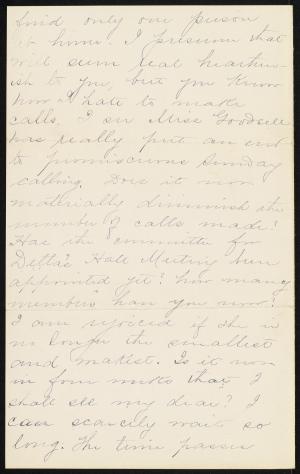 find only one person
at home. I presume that
will seem real heathen-
ish to you, but you know
how I hate to make
calls. I see Miss Goodsell
has really put an end
to promiscuous Sunday
calling. Does it now
materially diminish the
number of calls made?
Has the committee for
Delta's Hall Meeting been
appointed yet? how many
members have you now?
I am rejoiced if she is
no longer the smallest
and makest. Is it now
in four weeks that I
shall see my dear? I
can scarcely wait so
long. The time passes